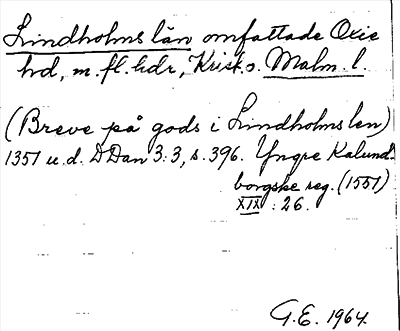 Lindholms län omfattade Oxie
hd, m. fl. hdr, Krist. o. Malm. l.
(Breve på gods i Lindholms len)
1351 u. d. DDan 3:3, s. 396. Yngre Kalund-
borgske reg. (1551)
XIX : 26.
G.E. 1964.